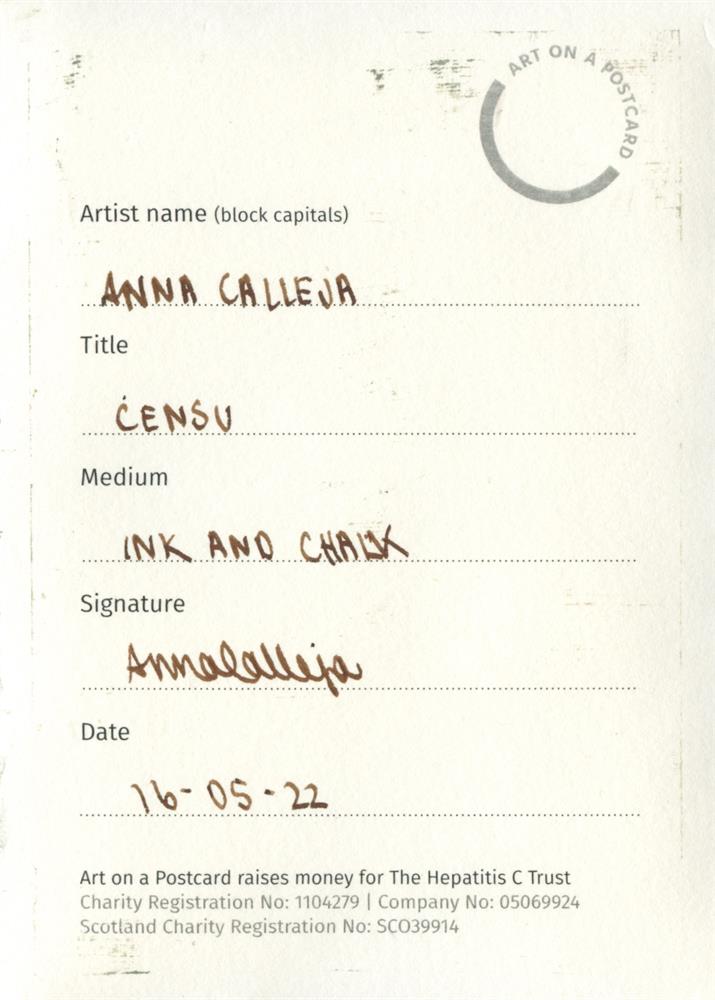 ART ON A POSTCARD
Artist name (block capitals)
ANNA CALLEJA
Title
ĊENSU
Medium
INK AND CHALK
Signature
AnnaCalleja
Date
16-05-22
Art on a Postcard raises money for The Hepatitis C Trust
Charity Registration No: 1104279 | Company No: 05069924
Scotland Charity Registration No: SCO39914